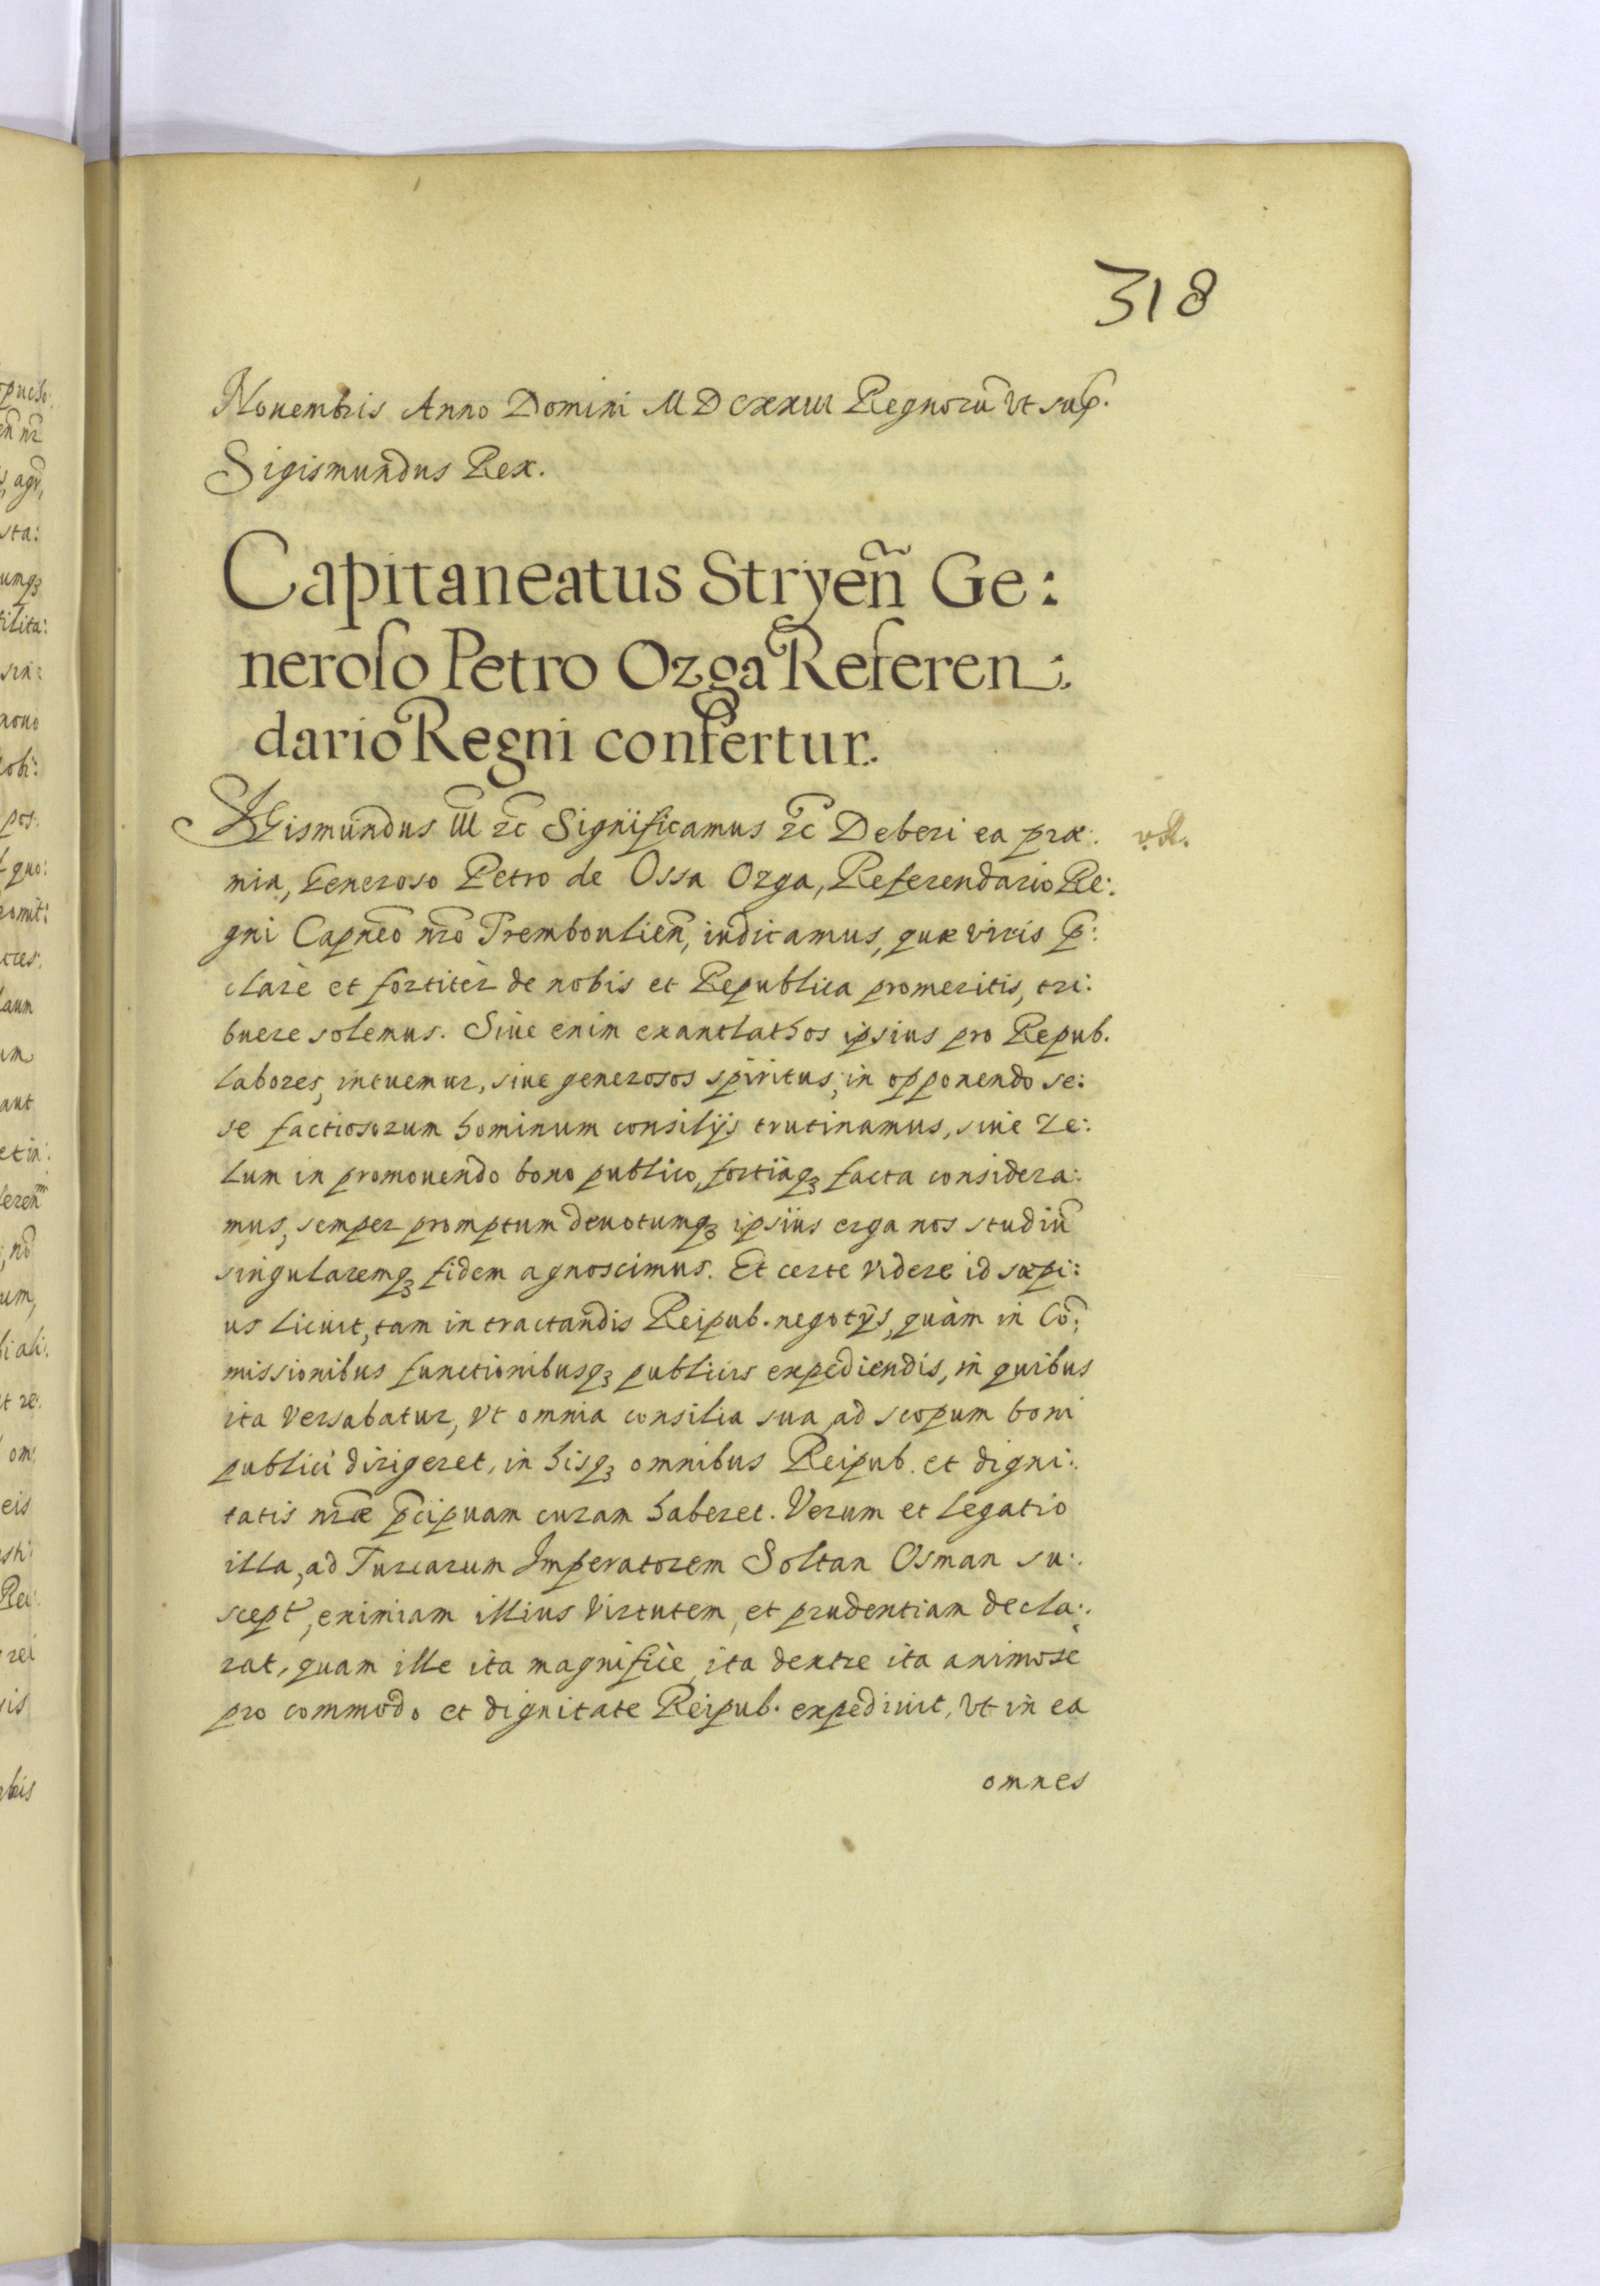 318
Nouembris Anno Domini MDCXXIII Regnorũ Vt sup.
Sigismundus Rex.
Capitaneatus Stryeñ Ge:
neroso Petro Ozga Referen:
dario Regni confertur.
SIGismundus III etc̃ Significamus etc̃ Deberi ea præ:
mia, Generoso Petro de Ossa Ozga, Referendario Re:
gni Capneo nr̃o Tremboulien̄, iudicamus, quæ viris p̄:
clarè et fortitèr de nobis et Republica promeritis, tri:
buere solemus. Siue enim exantlathos ipsius pro Repub.
labores, intuemur, siue generosos spiritus, in opponendo se:
se factiosorum hominum consilijs trutinamus, siue Ze:
lum in promouendo bono publico, fortiaqꝫ facta considera:
mus, semper promptum deuotumqꝫ ipsius erga nos studiũ
singularemqꝫ fidem agnoscimus. Et certe videre id sæpi:
us licuit, tam in tractandis Reipub. negotijs, quàm in Cõ:
missionibus functionibusqꝫ publicis expediendis, in quibus
ita Versabatur, Vt omnia consilia sua ad scopum boni
publici dirigeret, in hisqꝫ omnibus Reipub. et digni:
tatis nr̃æ p̄cipuam curam haberet. Verum et legatio
illa, ad Turcarum Imperatorem Soltan Osman su:
scept, eximiam illius Virtutem, et prudentiam decla:
rat, quam ille ita magnificè ita dextre ita animose
pro commodo et dignitate Reipub. expediuit, Vt in ea
omnes